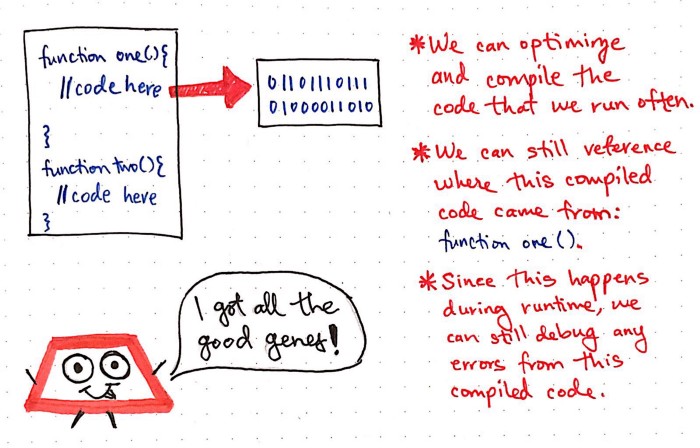 function one(){
//code here
}
function two(){
//code here
}
01101110111
01000011010
*We can optimirze
and compile the
code that we run often.
*We can still reference
where this compiled
code came from:
function one().
*Since this happens
during runtime, we
can still debug any
errors from this
compiled code.
I got all the
good genes!